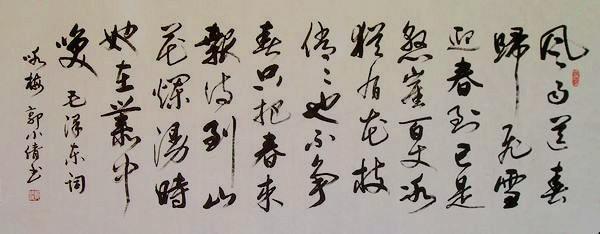 风雨送春
歸飛雪
迎春到已是
悬崖百丈冰
犹有花枝
俏俏也不争
春只把春来
報待到山
花爛漫時
她在叢中
咲
毛泽东词
咏梅 郭小倩书